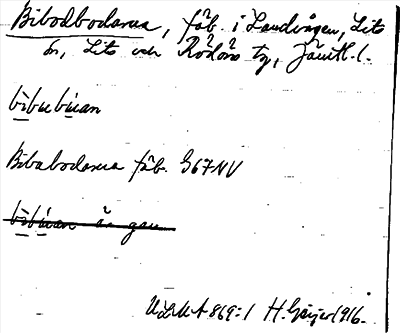 Bibodbodarna, fäb. i Landvågen, Lits
sn, Lits och Rödöns tg, Jämtl. l.
bìbubúan
Bibabodarna fäb. G67NV
bìbúan är gan
ULMA 869:1 H. Geijer 1916.